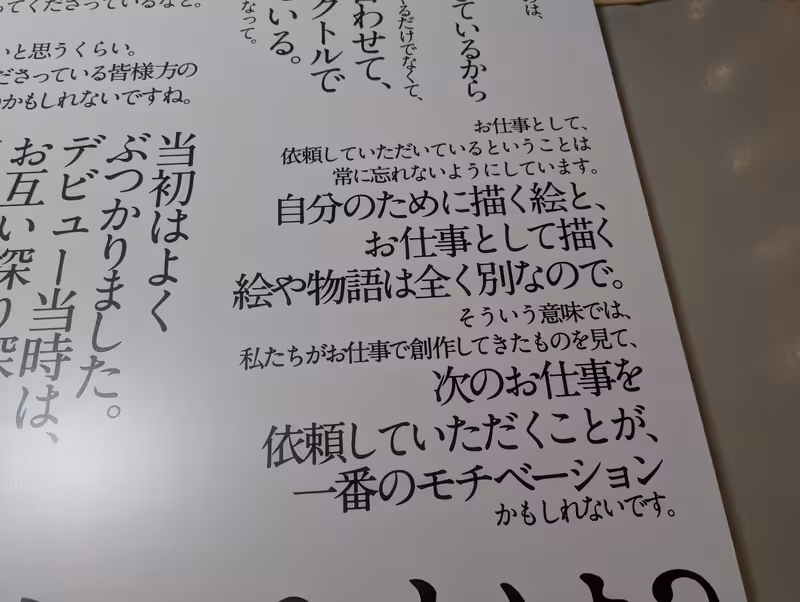 ってくださっているなと。
いと思うくらい。
ださっている皆様方の
かもしれないですね。
なって。
いる。
クトルで
わせて、
るだけでなくて、
ているから
は、
お仕事として、
依頼していただいているということは
常に忘れないようにしています。
自分のために描く絵と、
お仕事として描く
絵や物語は全く別なので。
そういう意味では、
私たちがお仕事で創作してきたものを見て、
次のお仕事を
依頼していただくことが、
一番のモチベーション
かもしれないです。
当初はよく
ぶつかりました。
デビュー当時は、
お互い深